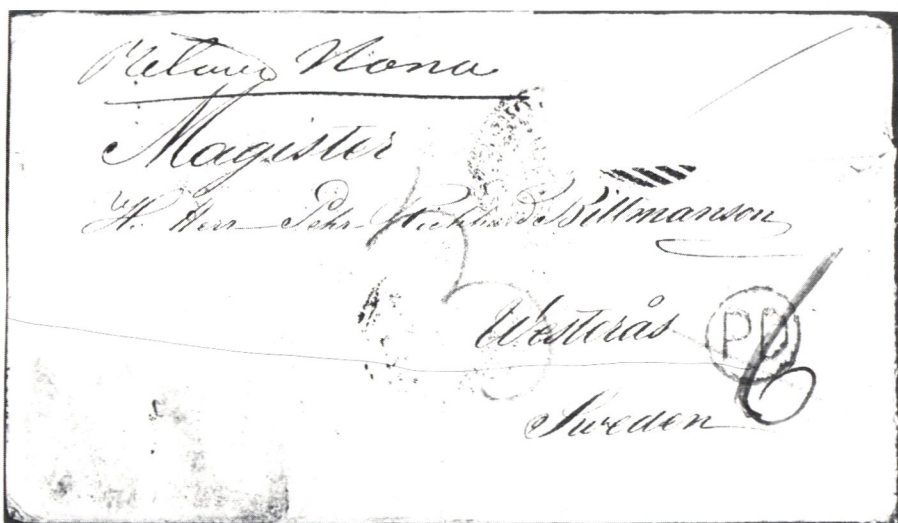 Magister
H. Herr Pehr Billmanson
Westerås
PD
6
Sweden